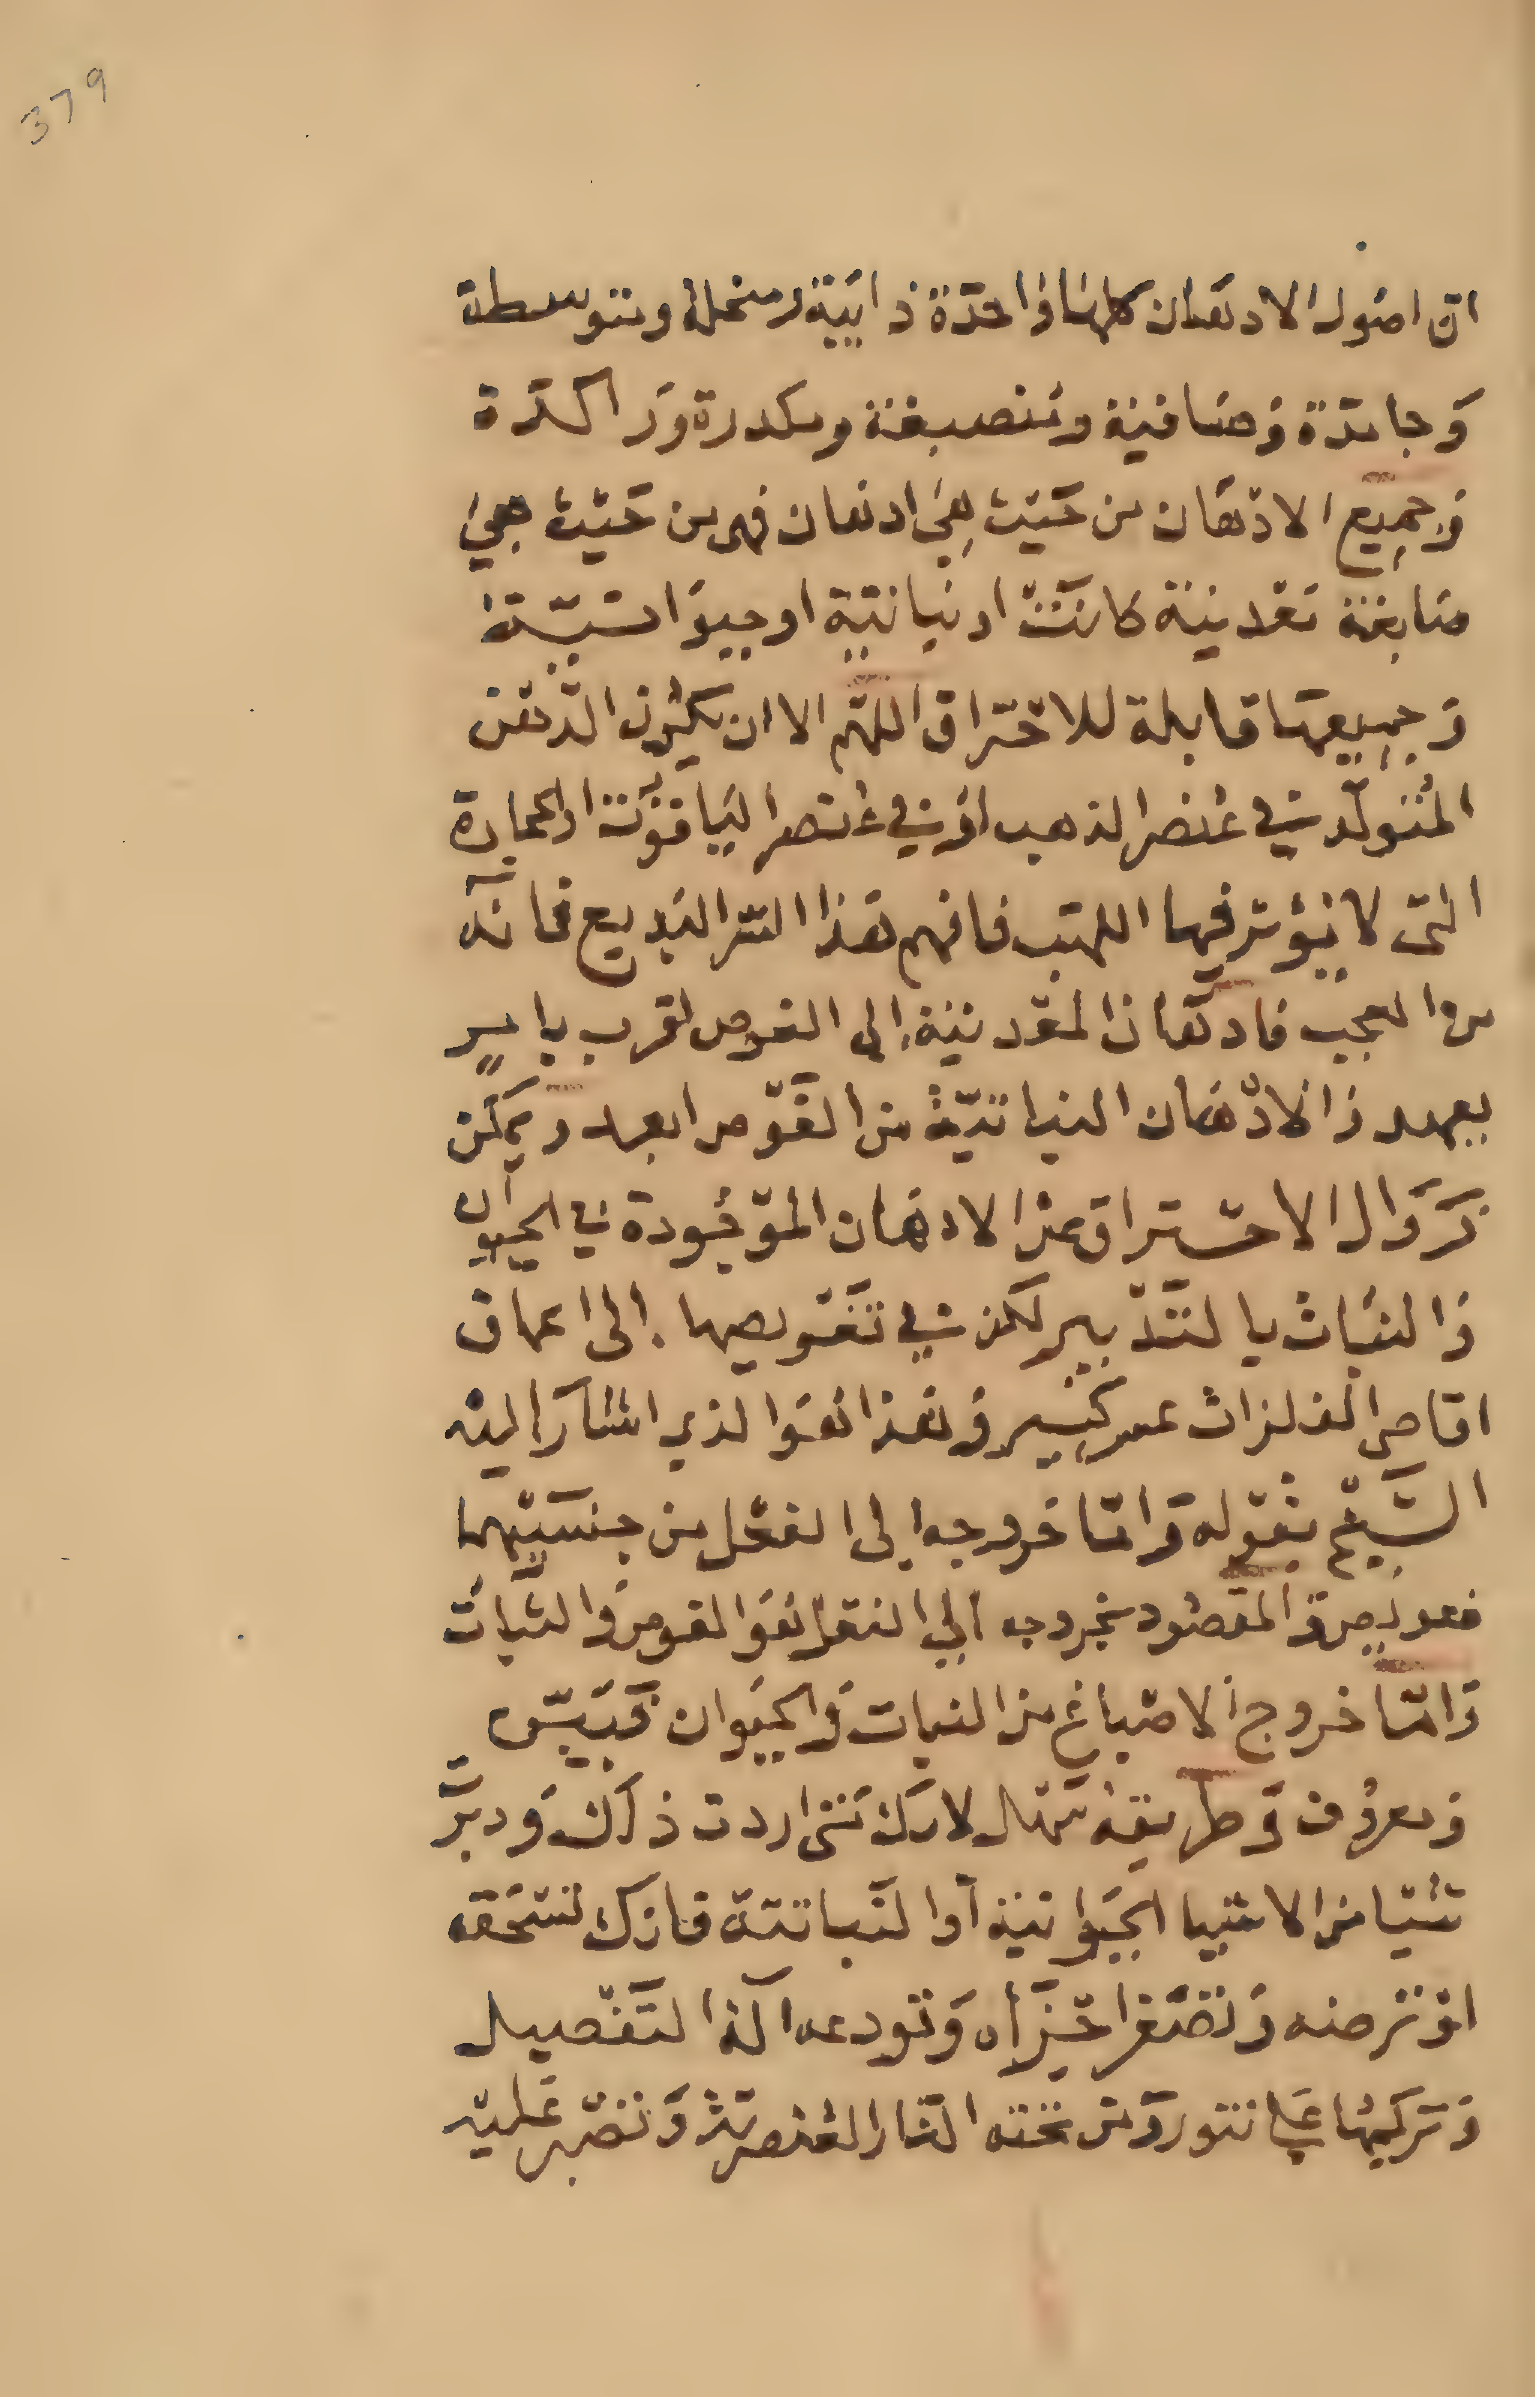 379
ان اصول الادهان كلها واحدة ذايبة ومنحلة ومتوسطة
وجامدة وصافية ومنصبغة ومكدرة وراكدة
وجميع الادهان من حيث هي ادهان فهي من حيث هي
صابغة معدنية كانت او نباتية او حيوانية
وجميعها قابلة للاحتراق اللهم الا ان يكون الدهن
المتولد في عنصر الذهب او في عنصر الياقوت او الحجارة
التى لا يؤثر فيها اللهب فافهم هذا السر البديع فانه
من العجب فادهان المعدنية الى الغوص اقرب يا
والادهان النباتية من الغوص ابعد ويمكن
زوال الاحتراق عن الادهان الموجودة في الحيوان
والنبات بالتدبير لكن في تغويصها الى اعماق
اقاصى الفلزات عسر كبير وهذا هو الذي اشار اليه
الشيخ بقوله واما خروجه الى الفعل من جنسيتهما
فعويص والمقصود بخروجه الى الفعل هو الغوص والثبات
واما خروج الاصباغ من النبات والحيوان فبين
ومعروف وطريقه سهل لانك متى اردت ذلك ودبر
شيا من الاشيا الحيوانية او النباتية فانك تسحقه
او ترضه وتصغر اجزاه وتودعه آلة التفصيل
وتركبها على تنور ومن تحته النار العنصرية وتصبر عليه